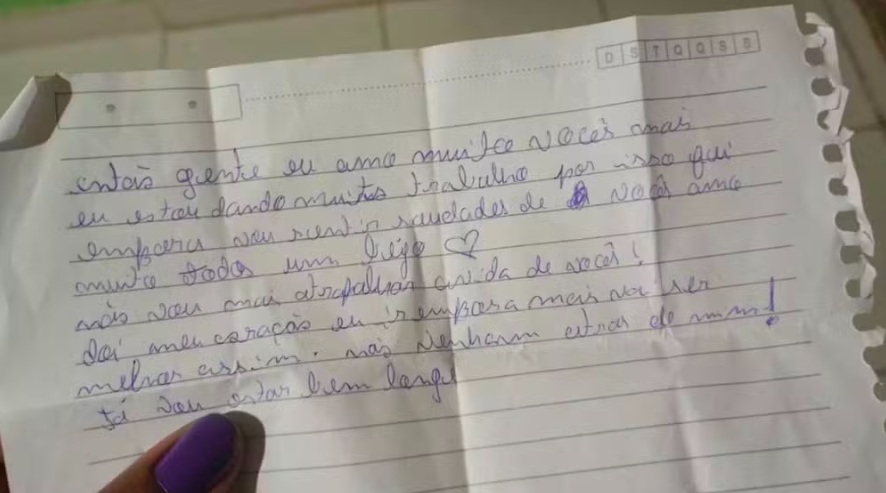 D S T Q Q S S
entais guente eu amo muito voces mais
eu estou dando muitos trabalho por isso qui
empora vou sentir saudades de voces amo
muito todos um beijo
não vou mai atrapalhar a vida de voces!
doi meu coração eu ir empora mais vai ser
melhor assim. não venham atras de mim!
tá vou estar bem longe